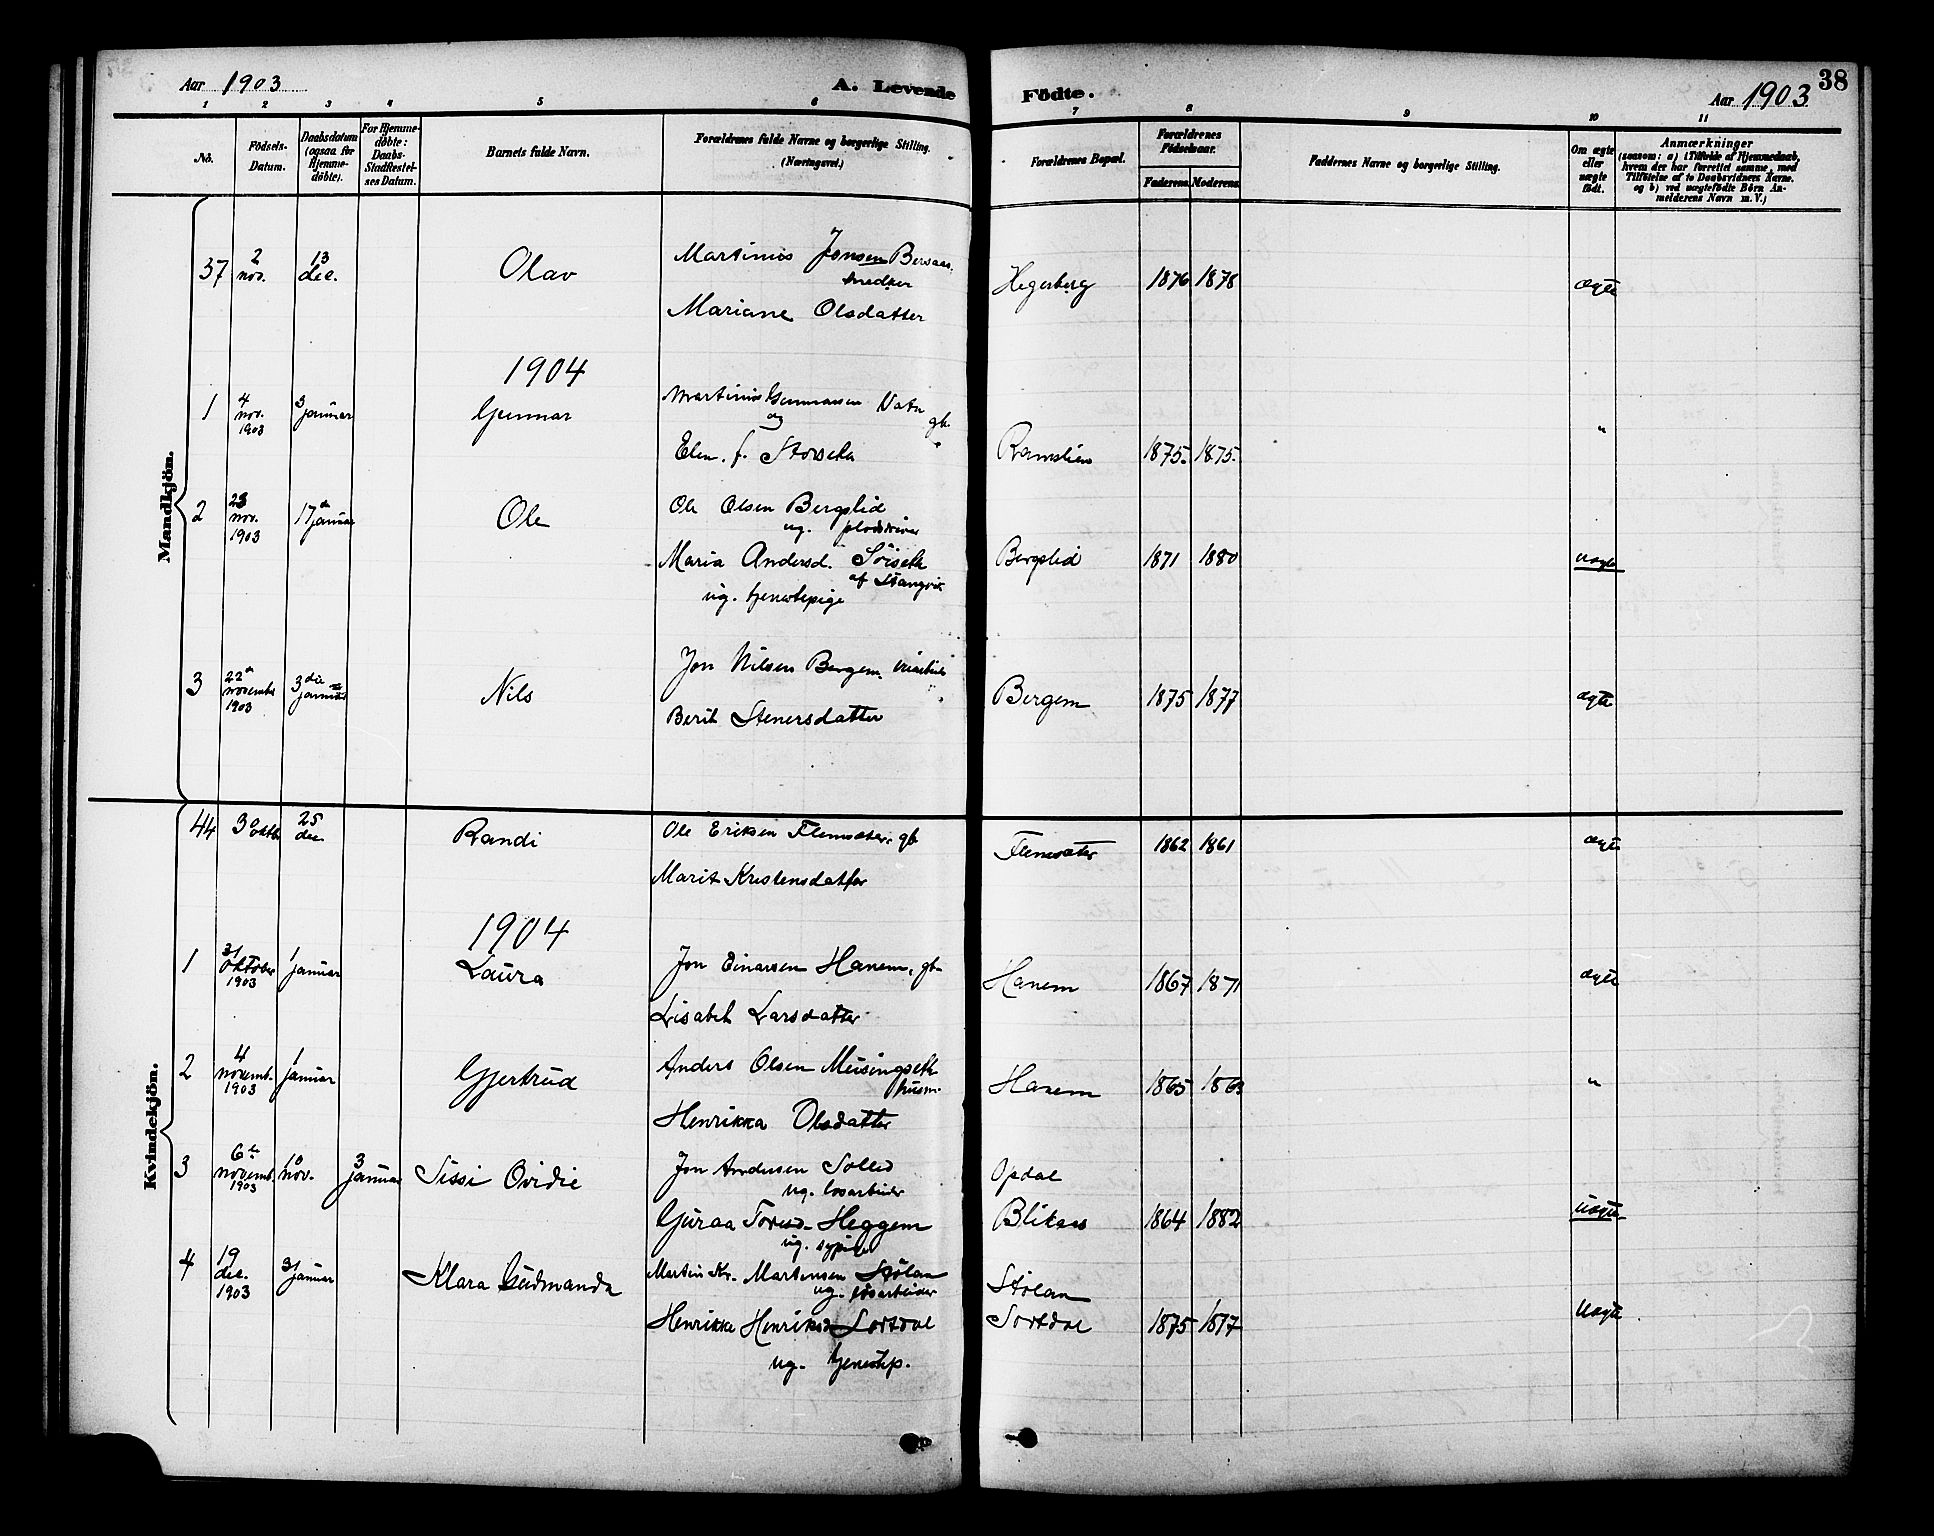 Aar 1903
A. Levende
Födte.
Aar 1903
38
1 2 3 4 5 6 7 8 9 10 11
No.
Födsels-
Datum.
Daabsdatum
(ogsaa for
Hjemme-
döbte).
For Hjemme-
döbte:
Daabs-
Stadfæstel-
ses Datum.
Barnets fulde Navn.
Forældrenes fulde Navne og borgerlige Stilling.
(Næringsvei.)
Forældrenes Bopæl.
Forældrenes
Födselsaar.
Faderens. Moderens.
Faddernes Navne og borgerlige Stilling.
Om ægte
eller
uægte
födt.
Anmærkninger
(saasom: a) i Tilfælde af Hjemmedaab,
hvem der har forrettet samme, med
Tilföielse af to Daabsvidners Navne.
og b) ved uægtefödte Börn An-
melderens Navn m. V.)
Mandkjön.
37 2 nov. 13 dec. Olav Martinus Jonsen Bersaas,
snedker
Mariane Olsdatter
Hegerberg 1876 1878 ægte
1904
1 4 nov. 1903 3 januar Gunnar Martinus Gunnarsen Vatn gb.
og
Elen. f. Storseth
1875. 1875. "
2 23 nov. 1903 17de januar Ole Ole Olsen Bergslid
ug.
Maria Andersd. Söiseth
af Stangvik
ug. tjenestepige
Bergslid 1871 1880 uægte
3 22de november 1903 3die januar Nils Jon Nilsen Bergem
Berit Stenersdatter
Bergem 1875 1877 ægte
Kvindekjön.
44 30 oktb 25 dec. Randi Ole Eriksen Flemsæter, gb.
Marit Kristensdatter
Flemsæter 1862 1861 ægte
1904
1 31 oktober 1903 1 januar Laura Jon Einarsen Hanem, gb.
Lisabet Larsdatter
Hanem 1867 1871 ægte
2 4 novemb. 1903 1 januar Gjertrud Anders Olsen Meisingseth
husm.
Henrikka Olsdatter
Hanem 1865 1863 "
3 6te novemb. 1903 10 nov. 3 januar Sissi Ovidie Jon Andersen Sollid
ug. løsarbeider
Guraa Toresd. Heggem
ug. sypige
Opdal
Blikaas 1864 1882 uægte
4 19 dec. 1903 3 januar Klara Gudmanda Martin Kr. Martinsen Stølan
ug. løsarbeider
Henrikke Henriksd. Sortdal
ug. tjenestep.
Stølan
Sortdal 1875 1877 uægte